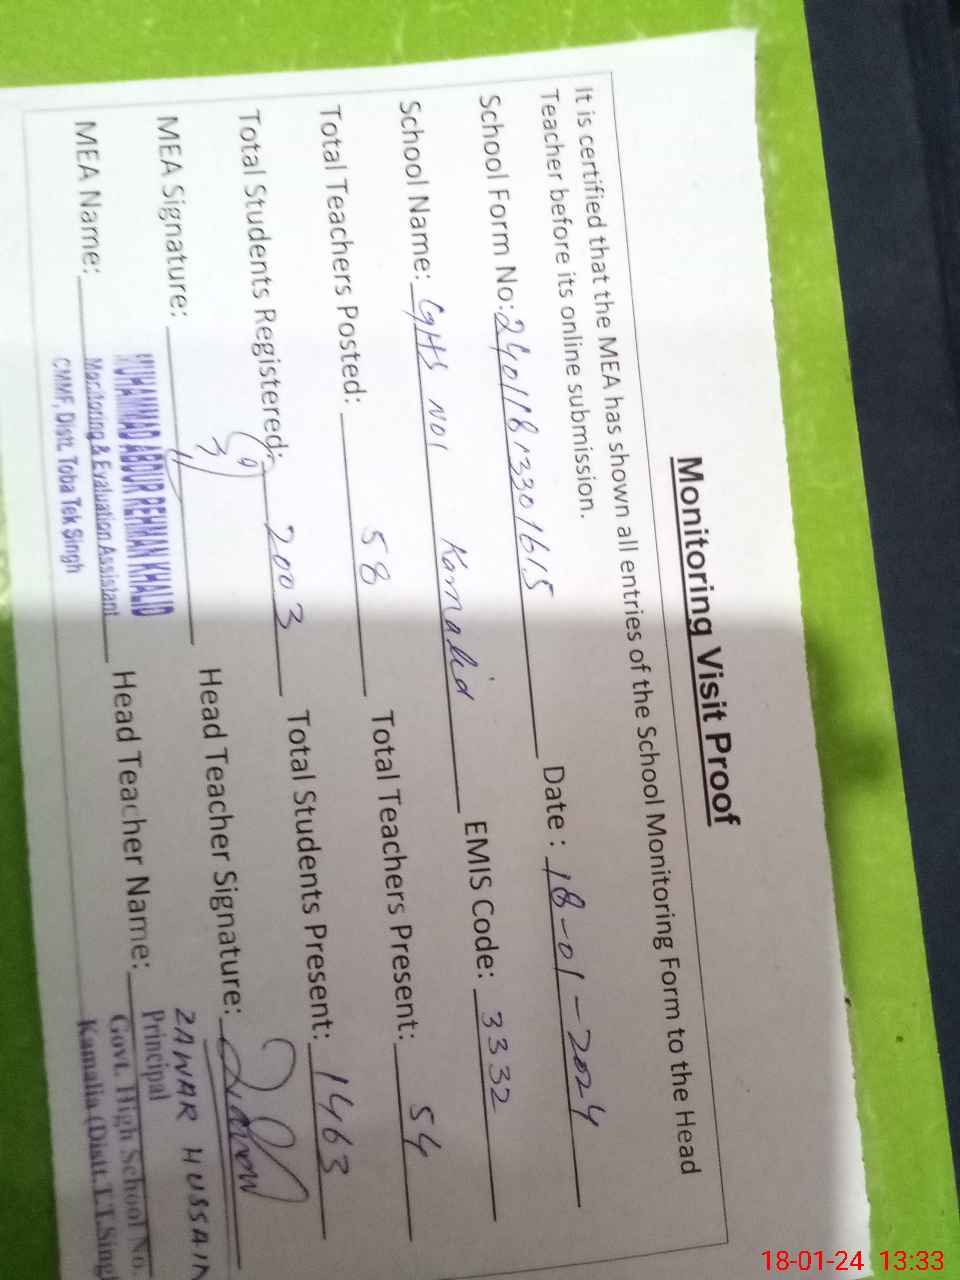 Monitoring Visit Proof
It is certified that the MEA has shown all entries of the School Monitoring Form to the Head
Teacher before its online submission.
School Form No: 2401181330161.5 Date : 18-01-2024
School Name: GHS NO1 Kamalia EMIS Code: 3332
Total Teachers Posted: 58 Total Teachers Present: 54
Total Students Registered: 2003 Total Students Present: 1463
MEA Signature: Head Teacher Signature:
MUHAMMAD ABDUR REHMAN KHALID
ZAWAR HUSSAIN
MEA Name: Monitoring & Evaluation Assistant Head Teacher Name: Principal
CMMF, Distt. Toba Tek Singh
Govt. High School No.
Kamalia (Distt.T.T.Singh
18-01-24 13:33